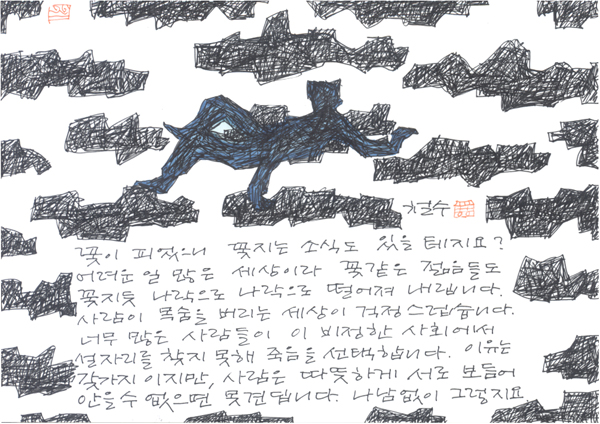 철수
꽃이 피었으니 꽃지는 소식도 있을 테지요?
어려운 일 많은 세상이라 꽃같은 젊음들도
꽃지듯 나락으로 나락으로 떨어져 내립니다.
사람이 목숨을 버리는 세상이 걱정스럽습니다.
너무 많은 사람들이 이 비정한 사회에서
설자리를 찾지 못해 죽음을 선택합니다. 이유는
갖가지이지만, 사람은 따뜻하게 서로 보듬어
안을수 없으면 못견딥니다. 나남없이 그렇지요.